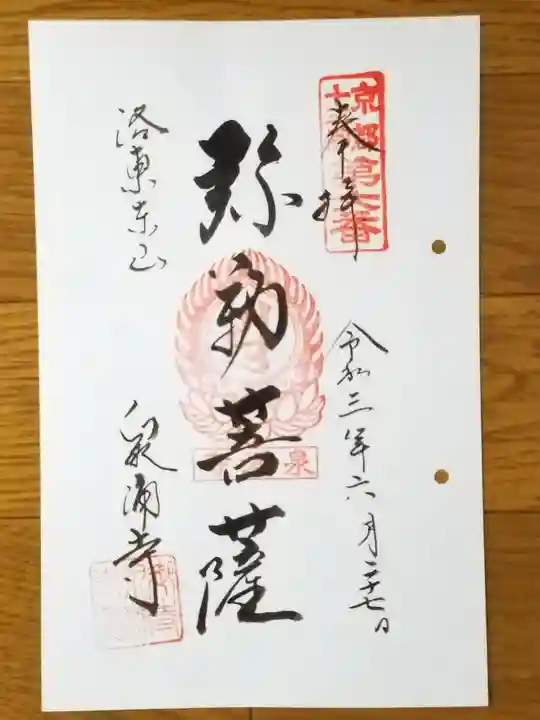 奉拝
令和三年六月二十七日
弥勒菩薩
泉
洛東東山
泉涌寺